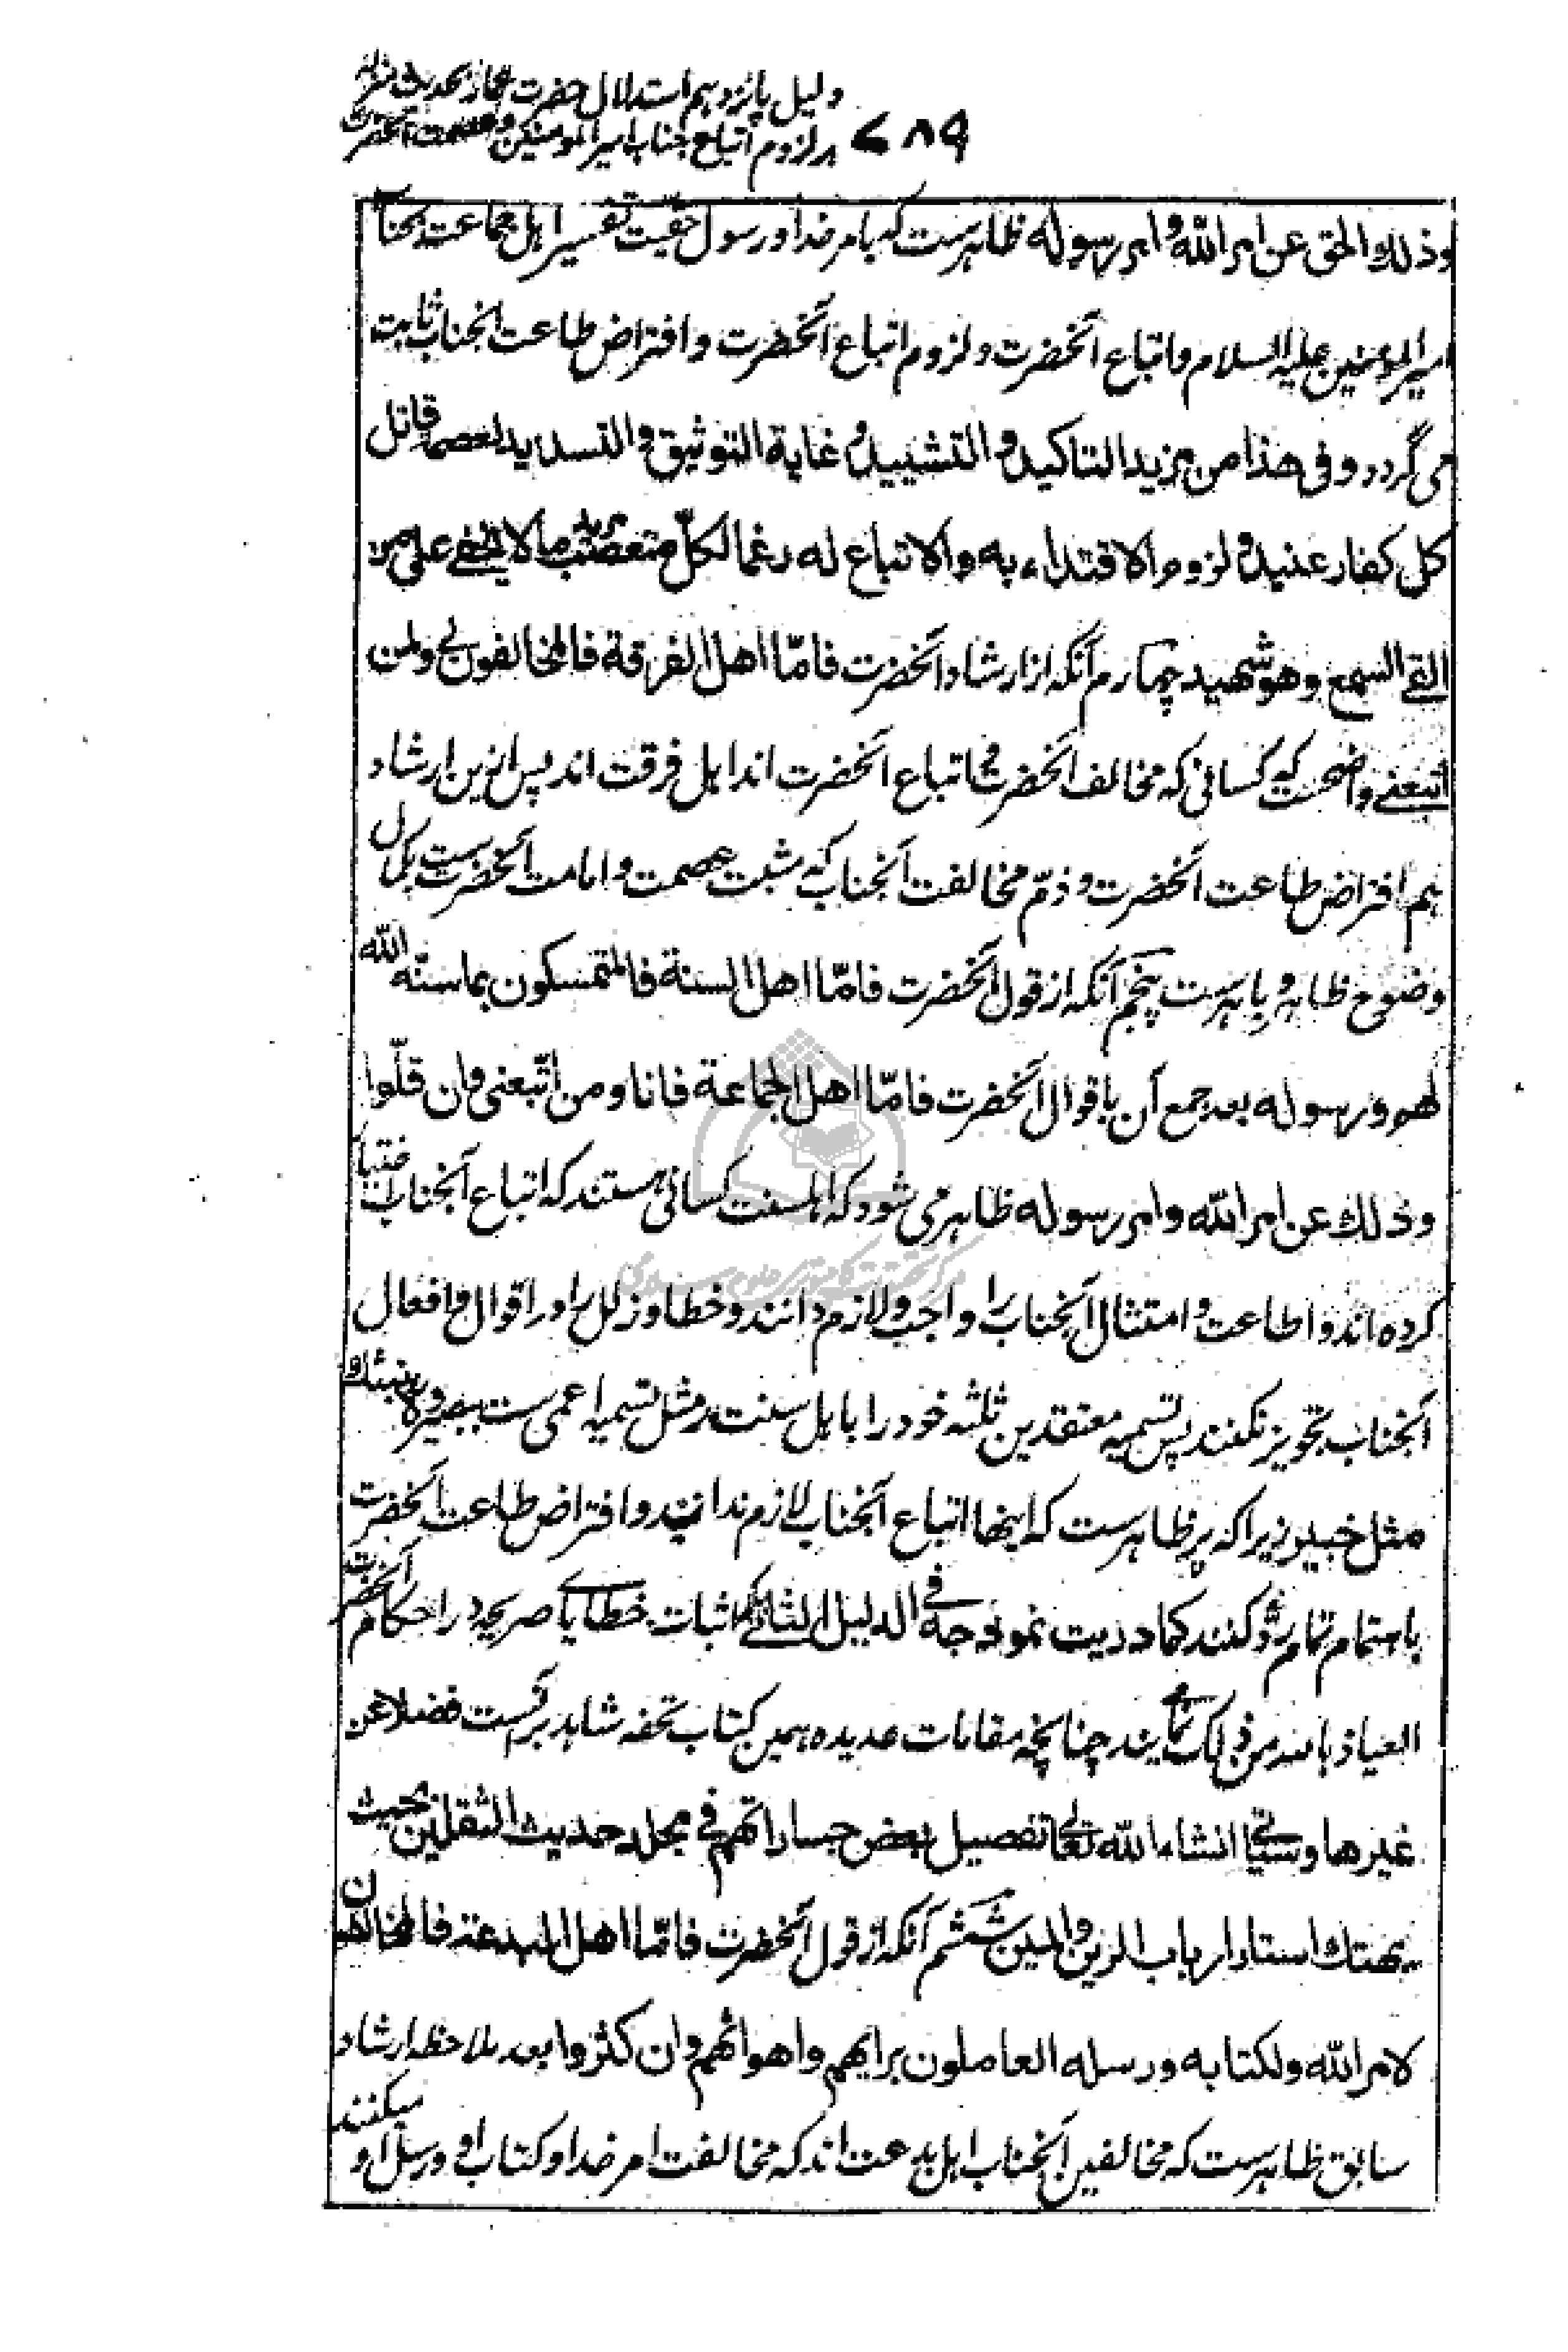 دلیل پانزدهم استدلال حضرت عمار بحدیث منزله
۶۸۹ بر لزوم اتباع جناب امیر المومنین و عصمت آنحضرت
وذلك الحق عن امر الله و امر رسوله ظاهرست که بامر خدا و رسول حقیت تفسیر اهل جماعت بجناب
امیر المومنین علیه السلام و اتباع آنحضرت و لزوم اتباع آنحضرت و افتراض طاعت آنجناب ثابت
می گردد و فی هذا من مزید التاکید و التشیید و غایة التوثیق و التسدید لعصمة قاتل
کل کفار عنید و لزوم الاقتداء به و الاتباع له رغما لکلّ متعصّب مرید ما لا یخفی علی من
القی السمع و هو شهید چهارم آنکه از ارشاد آنحضرت فامّا اهل الفرقة فالمخالفون لی ولمن
اتبعنی واضحست که کسانی که مخالف آنحضرت و اتباع آنحضرت اند اهل فرقت اند پس ازین ارشاد
هم افتراض طاعت آنحضرت و ذمّ مخالفت آنجناب که مثبت عصمت و امامت آنحضرت ست بکمال
وضوح ظاهر و باهرست پنجم آنکه از قول آنحضرت فامّا اهل السنة فالمتمسکون بما سنّه الله
لهم و رسوله بعد جمع آن باقوال آنحضرت فامّا اهل الجماعة فانا و من اتّبعنی و ان قلّوا
وذلك عن امر الله و امر رسوله ظاهر می شود که اهلسنت کسانی هستند که اتباع آنجناب اختیار
کرده اند و اطاعت و امتثال آنجناب را واجب و لازم دانند و خطا و زلل را در اقوال و افعال
آنجناب تجویز نکنند پس تسمیه معتقدین ثلثه خود را باهل سنت در مثل تسمیه اعمی ست ببصیر و لا ینبئك
مثل خبیر زیرا که پر ظاهرست که اینها اتباع آنجناب لازم ندانند و افتراض طاعت آنحضرت
باهتمام تمام ردّ کنند کما دریت نموذجه فی الدلیل الثانی بلکه اثبات خطایای صریحه در احکام آنحضرت
العیاذ بالله من ذلک نمایند چنانچه مقامات عدیده همین کتاب تحفه شاهد بر آنست فضلا عن
غیرها و سیاتی انشاء الله تعالی تفصیل بعض جساراتهم فی مجلد حدیث الثقلین بحیث
یهتك استار ارباب الرین و المین ششم آنکه از قول آنحضرت فامّا اهل البدعة فالمخالفون
لامر الله ولکتابه و رسله العاملون برایهم و اهوائهم و ان کثروا بعد ملاحظه ارشاد
سابق ظاهرست که مخالفین آنجناب اهل بدعت اند که مخالفت امر خدا و کتاب او و رسل او میکنند و